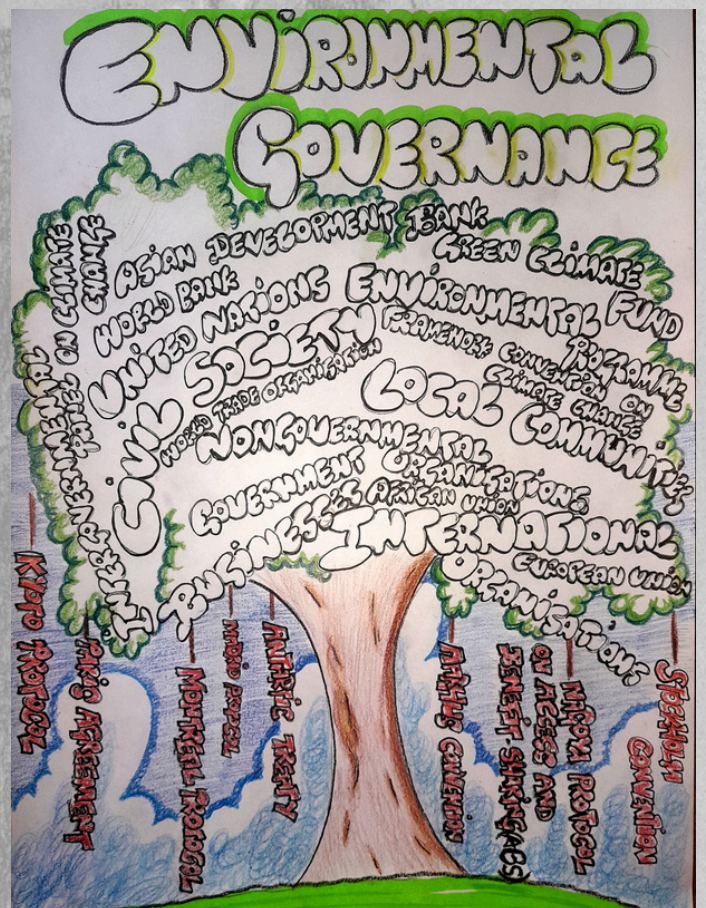 ENVIRONMENTAL
GOVERNANCE
ASIAN DEVELOPMENT BANK
GREEN CLIMATE FUND
WORLD BANK
UNITED NATIONS ENVIRONMENTAL PROGRAMME
CIVIL SOCIETY
FRAMEWORK CONVENTION ON
CLIMATE CHANGE
WORLD TRADE ORGANISATION
LOCAL COMMUNITIES
NONGOVERNMENTAL
ORGANISATIONS
GOVERNMENT
AFRICAN UNION
BUSINESSES
INTERNATIONAL
ORGANISATIONS
EUROPEAN UNION
INTERGOVERNMENTAL PANEL ON CLIMATE
KYOTO PROTOCOL
PARIS AGREEMENT
MONTREAL PROTOCOL
ANTARTIC TREATY
CONVENTION
NAGOYA PROTOCOL
ON ACCESS AND
BENEFIT SHARING(ABS)
STOCKHOLM
CONVENTION